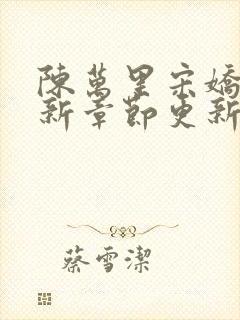 陳萬里宋嬌
新章節更新
蔡雪潔